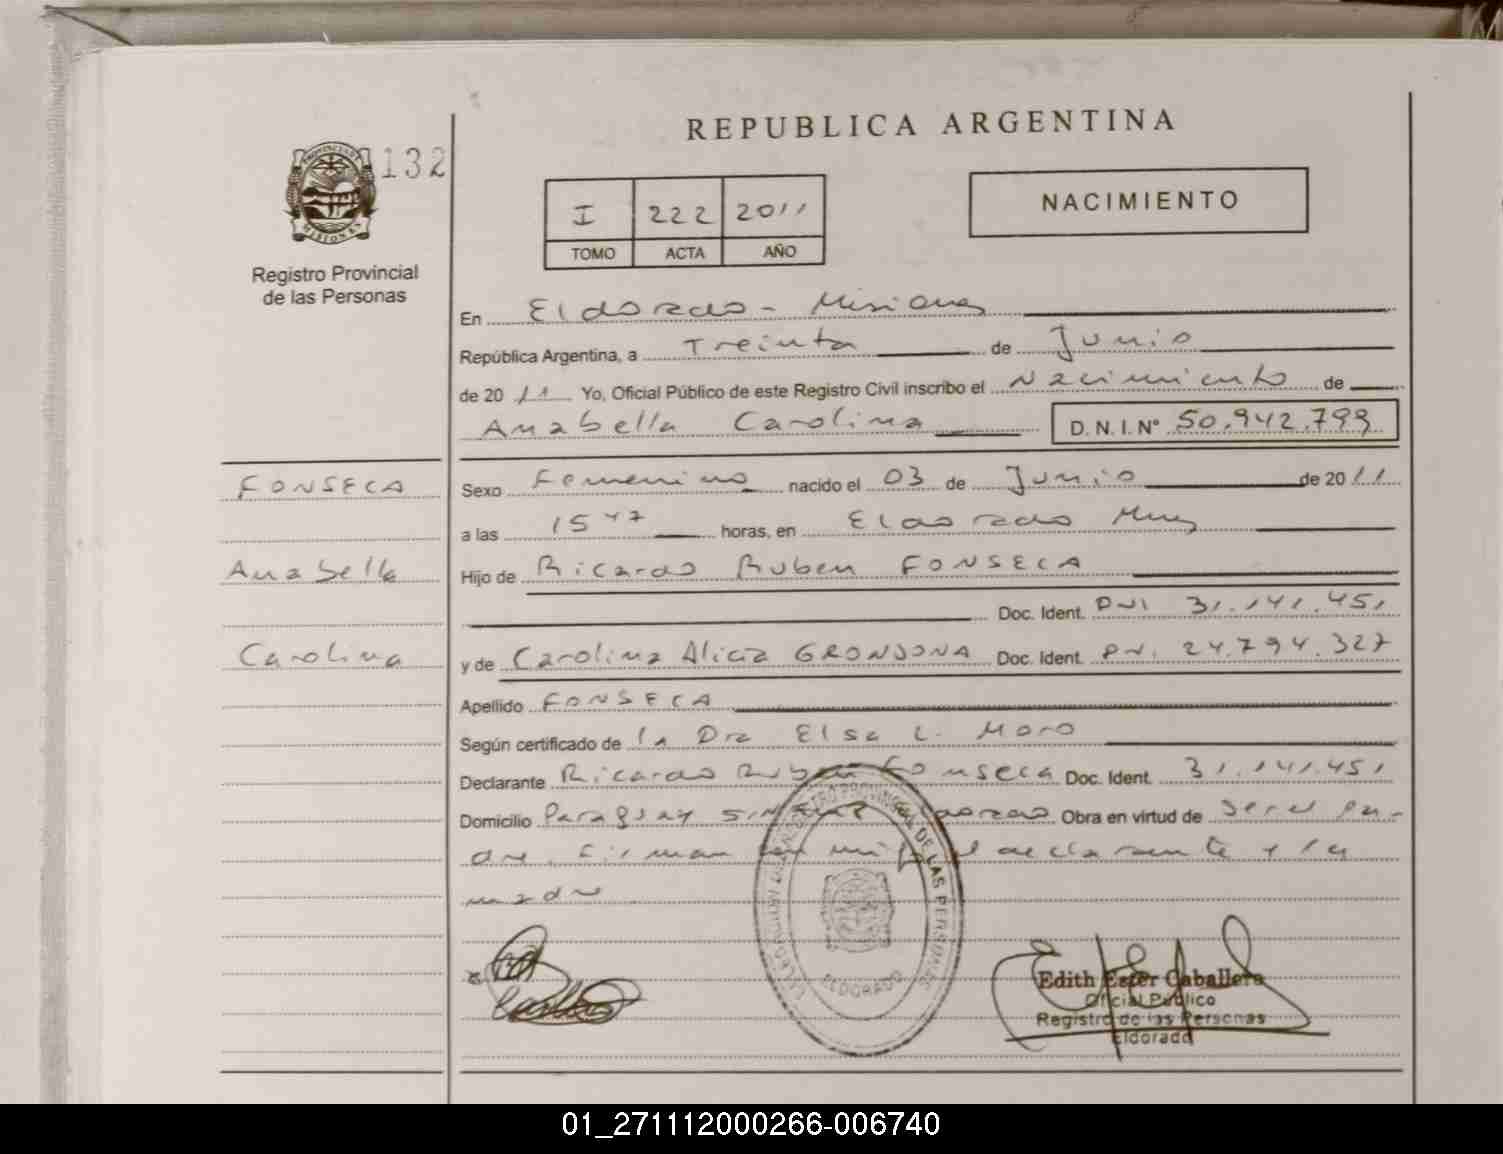 REPUBLICA ARGENTINA
132
I 222 2011
TOMO ACTA AÑO
NACIMIENTO
Registro Provincial
de las Personas
En Eldorado - Misiones
República Argentina, a Treinta de Junio
de 2011 Yo, Oficial Público de este Registro Civil inscribo el Nacimiento de
Anabella Carolina D.N.I.Nº 50.942.799
FONSECA
Anabella
Carolina
Sexo Femenino nacido el 03 de Junio de 2011
a las 15 47 horas, en Eldorado Mnes
Hijo de Ricardo Ruben FONSECA
Doc. Ident. DNI 31.141.451
y de Carolina Alicia GRONDONA Doc. Ident. DNI 24.794.327
Apellido FONSECA
Según certificado de la Dra Elsa L. Moro
Declarante Ricardo Ruben Fonseca Doc. Ident. 31.141.451
Domicilio Paraguay Eldorado Obra en virtud de ser el pa-
dre. Firman declarante y la
madre
DELEGACION DEL REGISTRO PROVINCIAL DE LAS PERSONAS
ELDORADO
Edith Ester Caballero
Oficial Público
Registro de las Personas
Eldorado
01_271112000266-006740